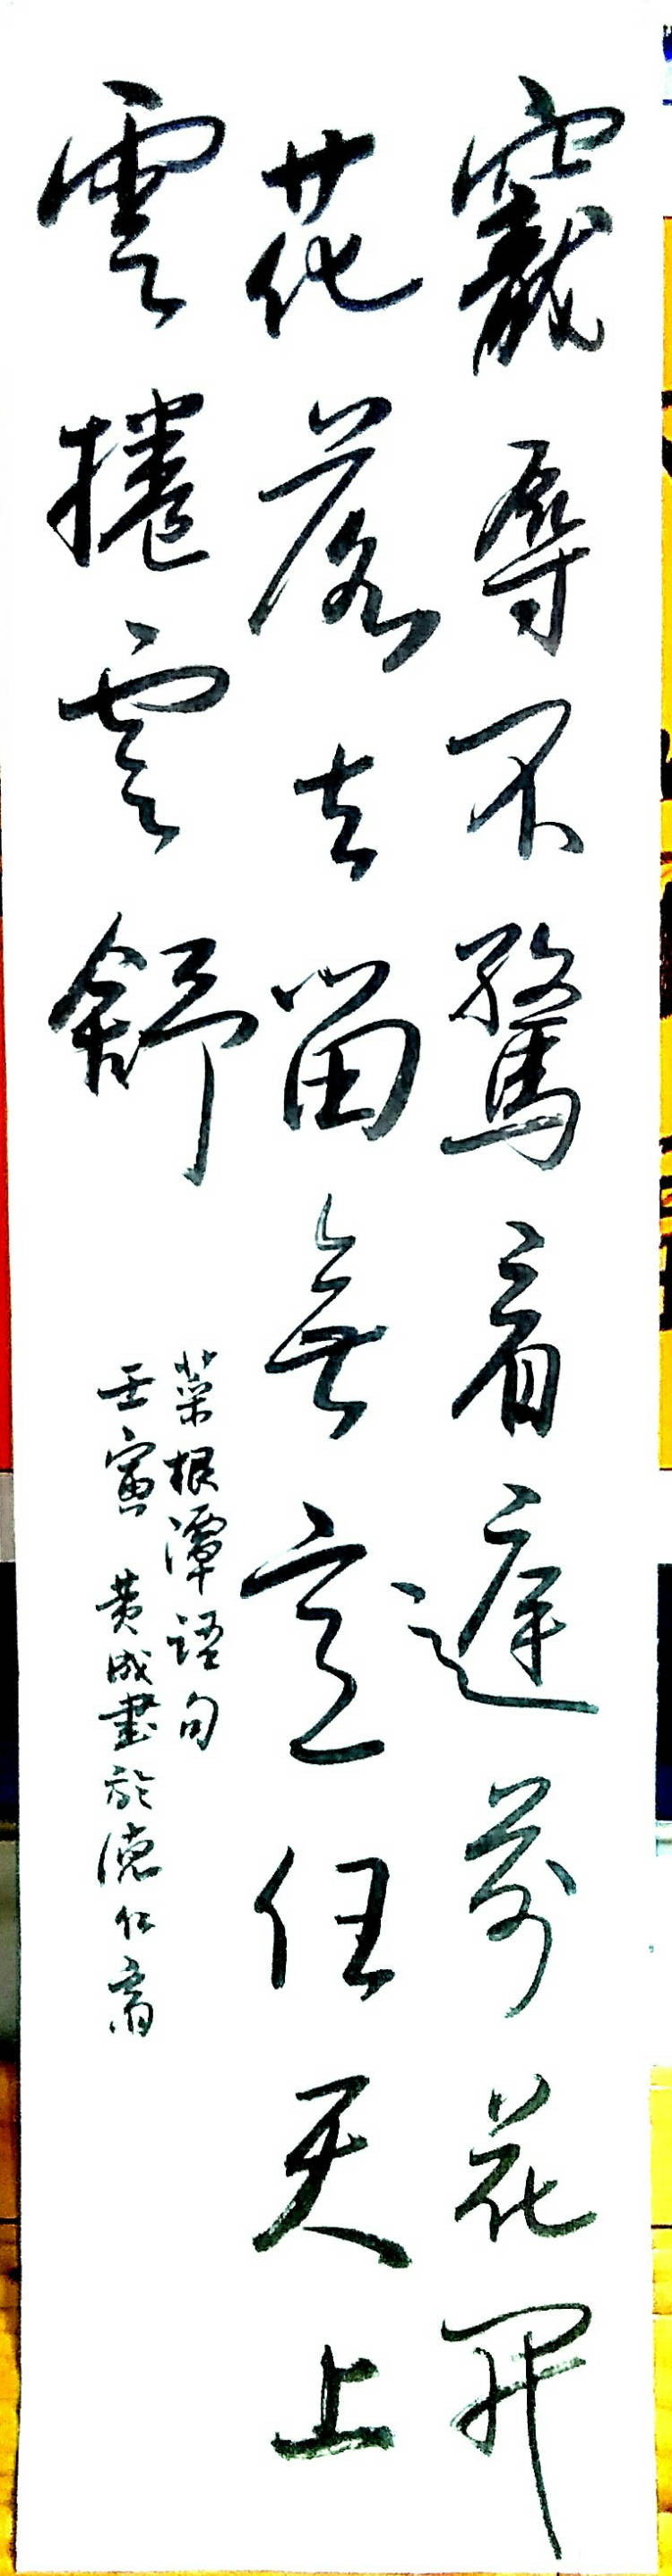 寵辱不驚看庭前花開
花落去留無意任天上
雲捲雲舒
菜根潭語句
壬寅 黄成書於德仁齋